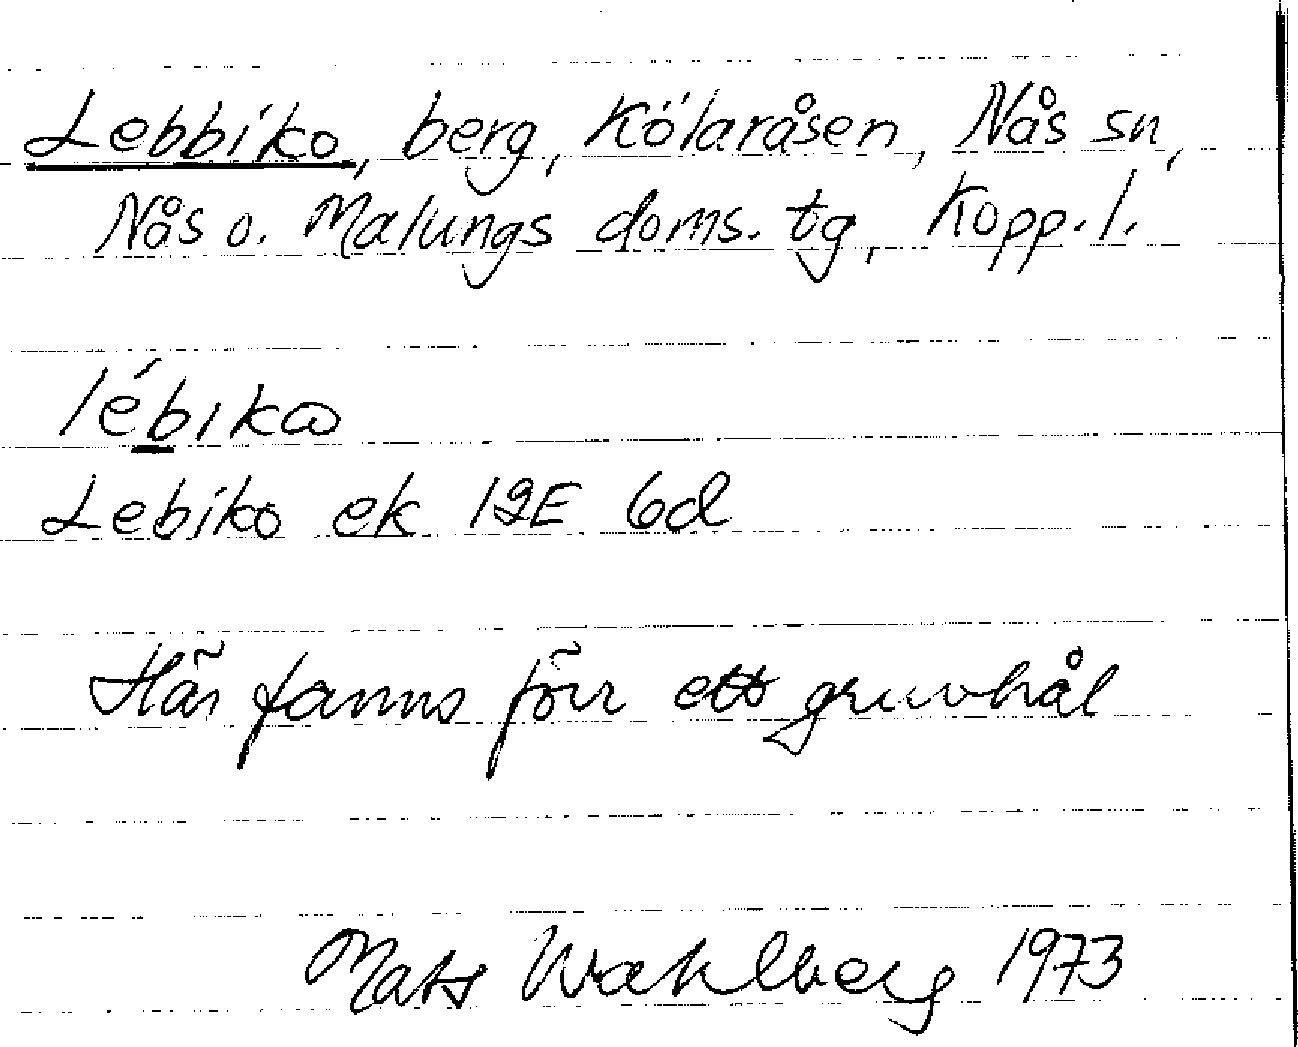 Lebbiko, berg, Kölaråsen, Nås sn,
Nås o. Malungs doms. tg, Kopp. l.
lébikω
Lebiko ek 12E 6d
Här fanns förr ett gruvhål
Mats Wahlberg 1973